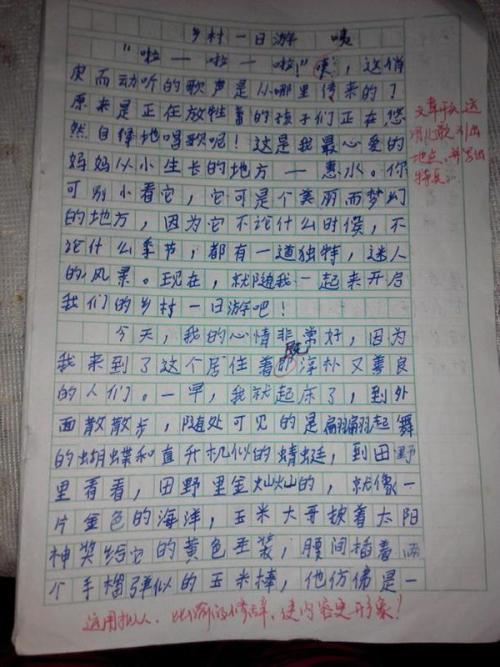 乡村一日游
“啦—啦—啦!”咦，这俏
皮而动听的歌声是从哪里传来的？
原来是正在放牲畜的孩子们正在悠
然自得地唱歌呢！这是我最心爱的
妈妈从小生长的地方—惠水。你
可别小看它，它可是个美丽而梦幻
的地方，因为它不论什么时候，不
论什么季节，都有一道独特，迷人
的风景。现在，就随我一起来开启
我们的乡村一日游吧！
今天，我的心情非常好，因为
我来到了这个居住着既淳朴又善良
的人们。一早，我就起床了，到外
面散散步，随处可见的是翩翩起舞
的蝴蝶和直升机似的蜻蜓，到田野
里看看，田野里金灿灿的，就像一
片金色的海洋，玉米大哥披着太阳
神奖给它的黄色圣装，腰间插着两
个手榴弹似的玉米棒，他仿佛是一
文章开头
引出
地点，并写出
特点。
运用拟人、比喻的修辞，使内容更形象！